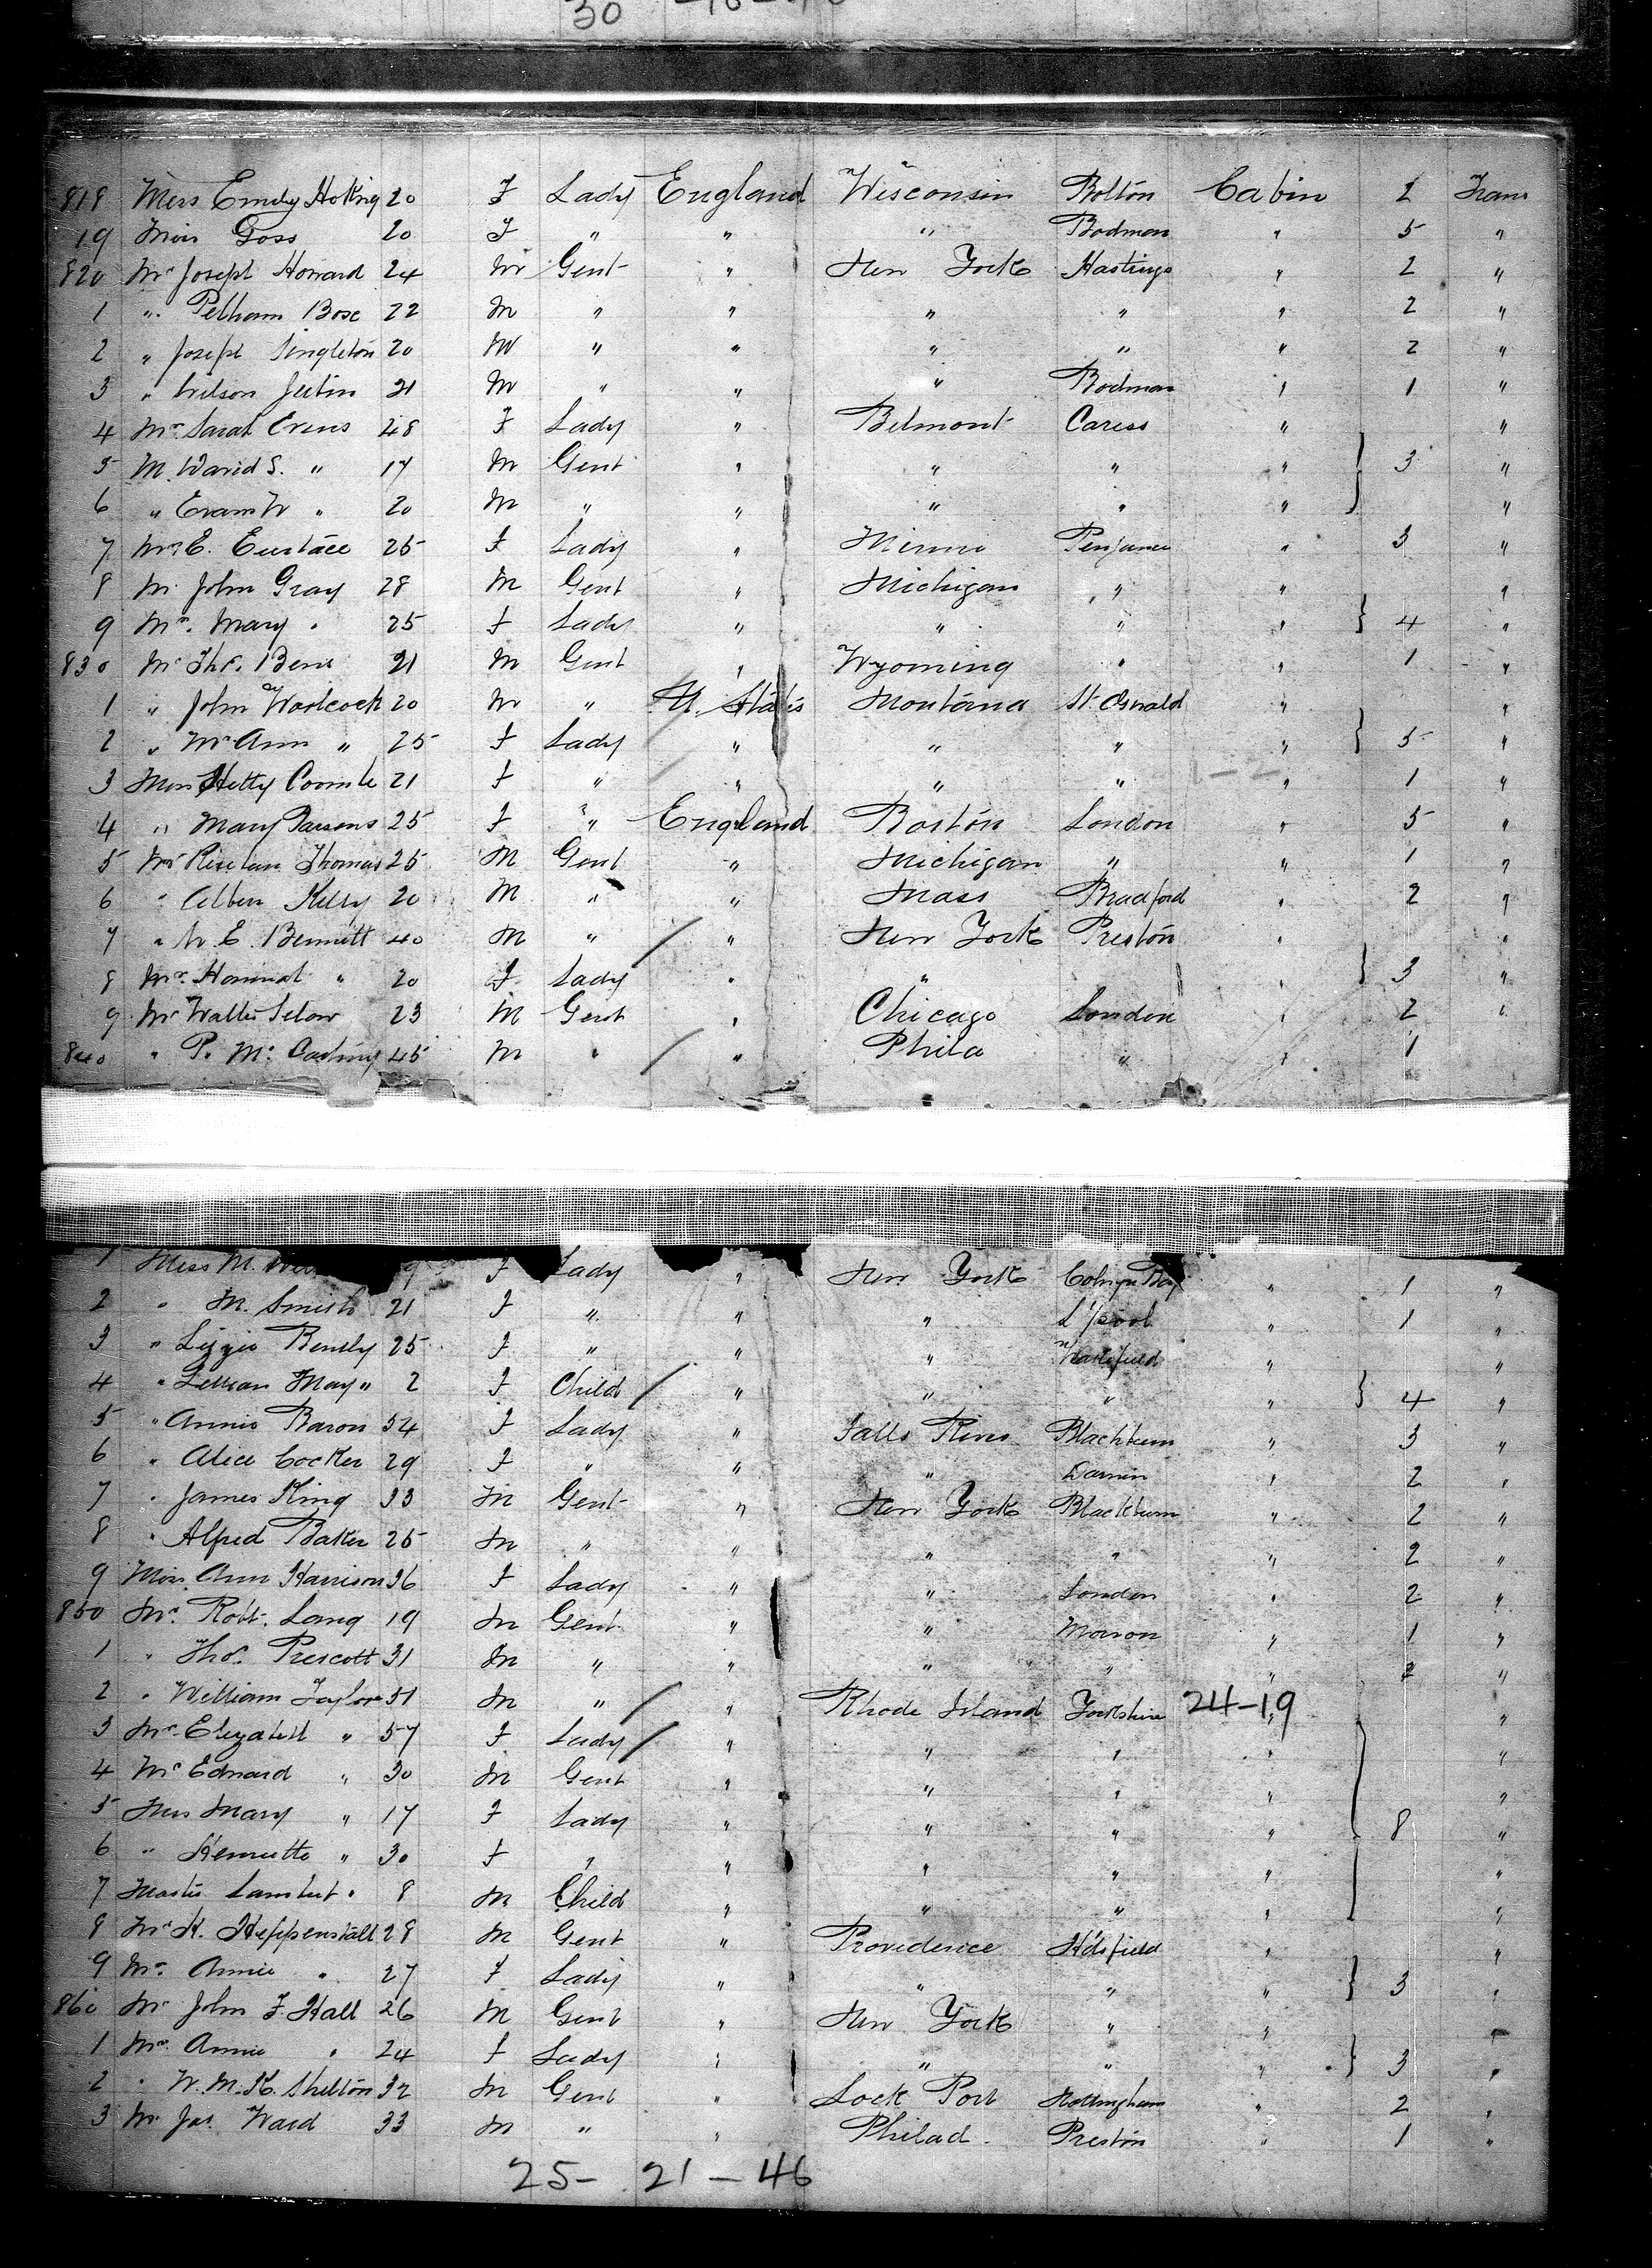 30
818 Miss Emily Hoking 20 F Lady England Wisconsin Bolton Cabin 2 Trans
19 Miss Goss 20 F " " " Bodman " 5 "
820 Mr Joseph Howard 24 M Gent " New York Hastings " 2 "
1 " Pelham Bose 22 M " " " " " 2 "
2 " Joseph Singleton 20 M " " " " " 2 "
3 " Wilson Jutin 21 M " " " Bodman " 1 "
4 Mrs Sarah Evens 48 F Lady " Belmont Caress " "
5 M. David S. " 17 M Gent " " " " } 3 "
6 " Evan W " 20 M " " " " " "
7 Mrs E. Eustace 25 F Lady " Minno Penzance " 3 "
8 Mr John Gray 28 M Gent " Michigan " " "
9 Mrs. Mary " 25 F Lady " " " " } 4 "
830 Mr Thos. Bens 21 M Gent " Wyoming " 1 "
1 " John Woolcock 20 M " U. States Montana St. Oswald " "
2 " Mrs Ann " 25 F Lady " " " " } 5 "
3 Miss Hetty Coombe 21 F " " " " " 1 "
4 " Mary Parsons 25 F " England Boston London " 5 "
5 Mr Thomas 25 M Gent " Michigan " " 1 "
6 " Kelly 20 M " " Mass Bradford " 2 "
7 " W. E. Bennett 40 M " " New York Preston " "
8 Mrs. Hannah " 20 F Lady " " " } 3 "
9 Mr Walter Selow 23 M Gent " Chicago London " 2 "
840 " P. Mc Carthny 45 M " " Phila " " 1
1 Miss M. F Lady " New York Colwyn Bay " 1 "
2 " M. Smith 21 F " " " L'pool " 1 "
3 " Lizzie Bently 25 F " " " Wakefield " "
4 " Lillian May " 2 F Child " " " " } 4 "
5 " Annie Baron 54 F Lady " Falls River Blackburn " 3 "
6 " Alice Cocker 29 F " " " Darwin " 2 "
7 " James King 33 M Gent " New York Blackburn " 2 "
8 " Alfred Baker 25 M " " " " " 2 "
9 Miss Ann Harrison 36 F Lady " " London " 2 "
850 Mr. Robt. Lang 19 M Gent " " " 1 "
1 " Thos. Prescott 31 M " " " " " 2 "
2 " William Taylor 51 M " " Rhode Island Yorkshire 24-19 " "
3 Mrs. Elizabeth " 57 F Lady " " " " "
4 Mr Edward " 30 M Gent " " " " "
5 Miss Mary " 17 F Lady " " " " } 8 "
6 " " 30 F " " " " " "
7 Master Lambert " 8 M Child " " " " "
8 Mr H. Heppenstall 28 M Gent " Providence H'dsfield " "
9 Mrs. Annie " 27 F Lady " " " " } 3 "
860 Mr John F. Hall 26 M Gent " New York " " "
1 Mrs. Annie " 24 F Lady " " " " } 3 "
2 " W. M. H. Shelton 32 M Gent " Lock Port Nottingham " 2 "
3 Mr Jas. Ward 33 M " " Philad. Preston " 1 "
25- 21-46